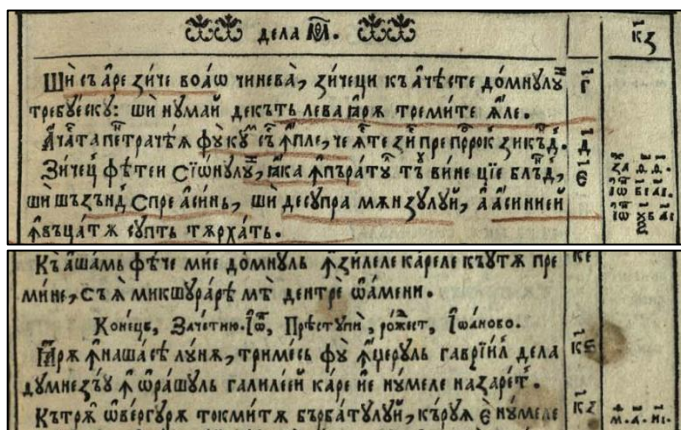 дела м҃ѳ. к҃з
Ши съ аре зиче воаѡ чинева̀, зичеци къ ачѣсте до́мнулꙋ н г҃
требуе́скꙋ: ши нꙋмай декѫть лева ꙗрѫ треми́те ꙟле. 
Ачаста петрачѣѧ фꙋкꙋ сѣ ꙟпле, че ꙗсте зи́с пре пррок зикѫ́нд. д҃
Зичец фѣтеи Сїѡ́нꙋлꙋй, ꙗка ꙟпъра́тꙋ тъ ви́не цїе блѫ́нд, є҃
ши шъзѫ́нд Спре аси́нь, ши десꙋпра мѫнзꙋлꙋй, а аси́нией
ꙟвъца́тѫ сꙋпть тѫрха́ть.
Къ аша́мь фѣче ми́е до́мнꙋль ꙟзилеле ка́реле къꙋтѫ пре к҃е
ми́не, съ ѧ микшꙋра́рѣ мѣ дентре ѡ́амени.
Коне́цъ, Зача́тию. Іѡ҃, Престꙋпѝ, ро́жест, Іѡа́ново.
Ꙗрѫ ꙟнаша́сѣ лꙋ́нѫ, триме́сь фꙋ ꙟџерꙋль гаврїи́л дела к҃ѕ
дꙋмнезъꙋ ꙟ ѡра́шꙋль галиле́ей ка́ре йе нꙋ́меле назаре́т.
Кътрѫ ѡве́ргꙋрѫ токми́тѫ бърба́тꙋлꙋй, кърꙋѧ є҆ нꙋ́меле к҃з м. а. и҃і.